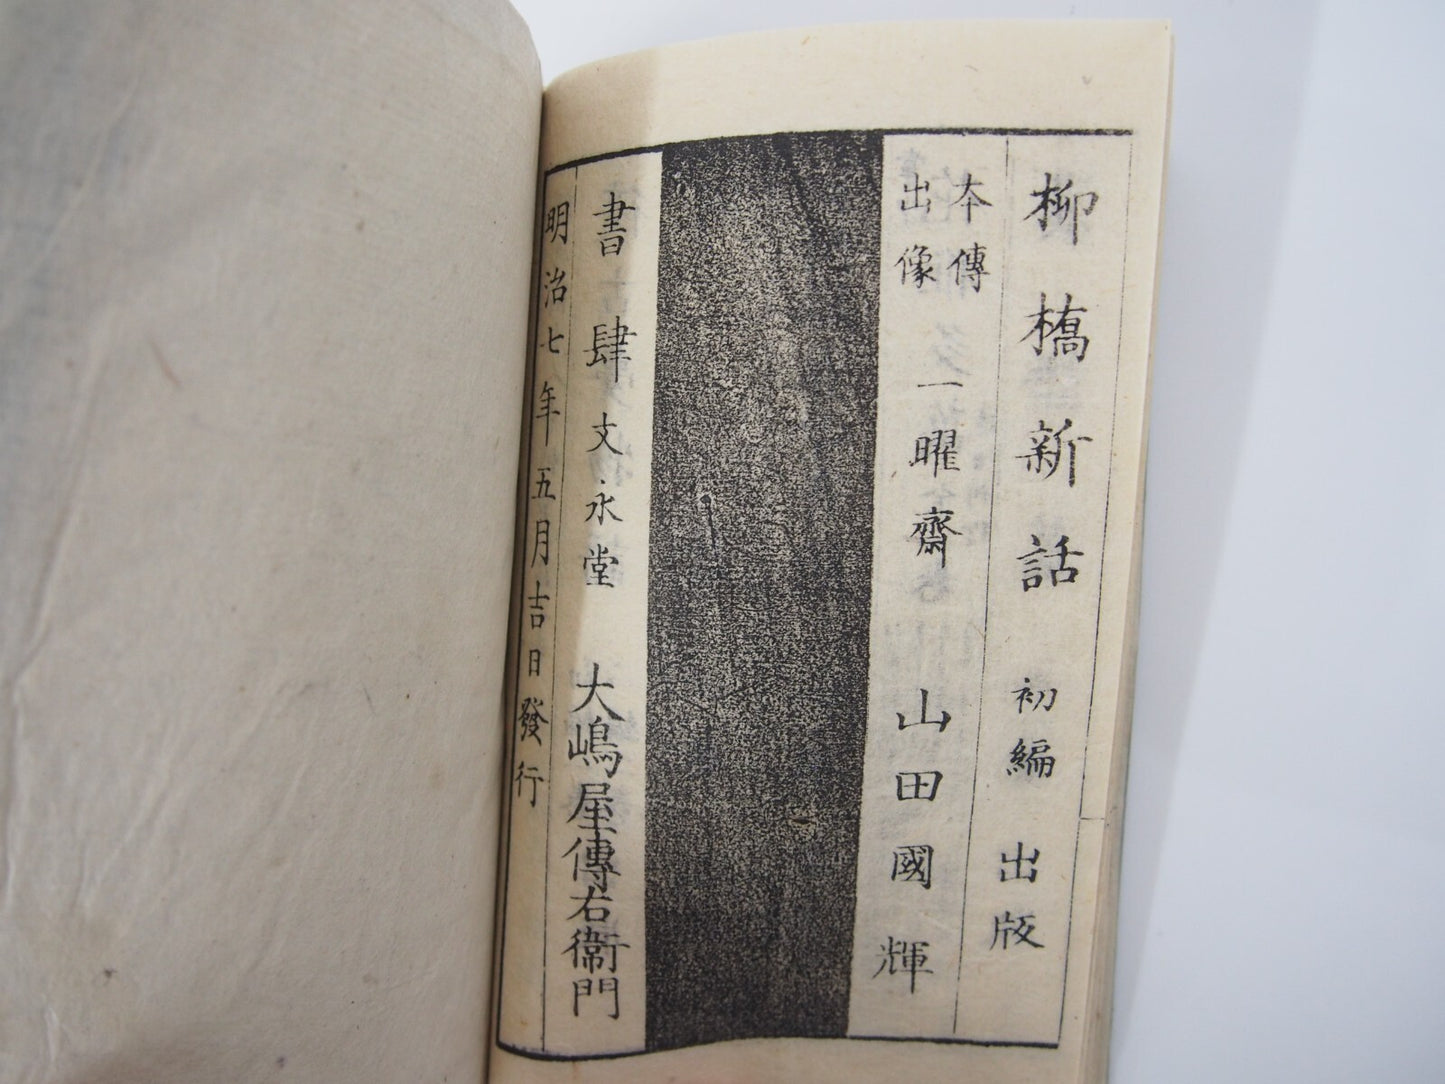 柳橋新話 初編 出版
本傳
出像
一曜齋 山田國輝
書肆 文永堂 大嶋屋傳右衞門
明治七年五月吉日發行